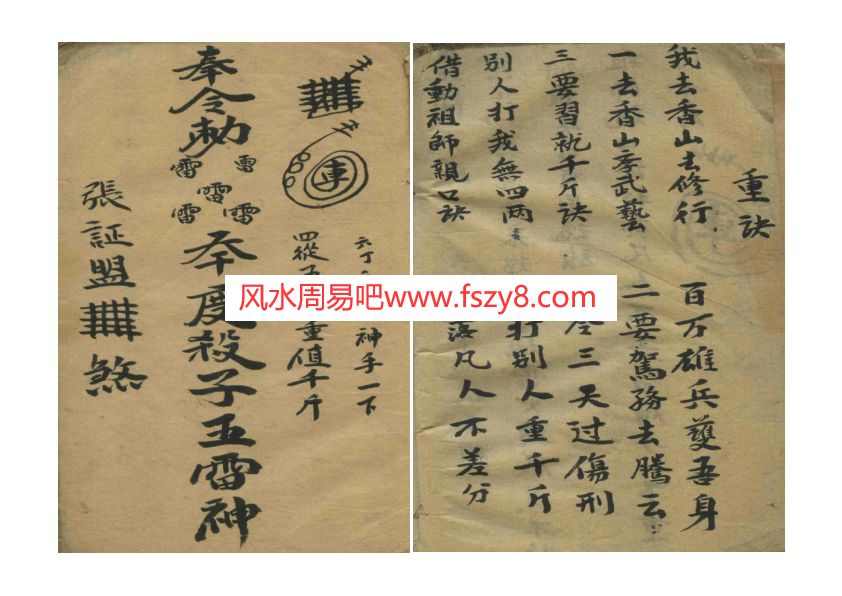 重訣
我去香山去修行 百万雄兵護吾身
一去香山学武藝 二要駕務去騰云
三要習就千斤訣 令三天过傷刑
別人打我無四両 打別人重千斤
借動祖師親口訣 落凡人不差分
六丁 神手一下
四縱五 重值千斤
車
奉令勅
雷雷雷雷雷
本度殺子五雷神
張証盟 煞
风水周易吧www.fszy8.com